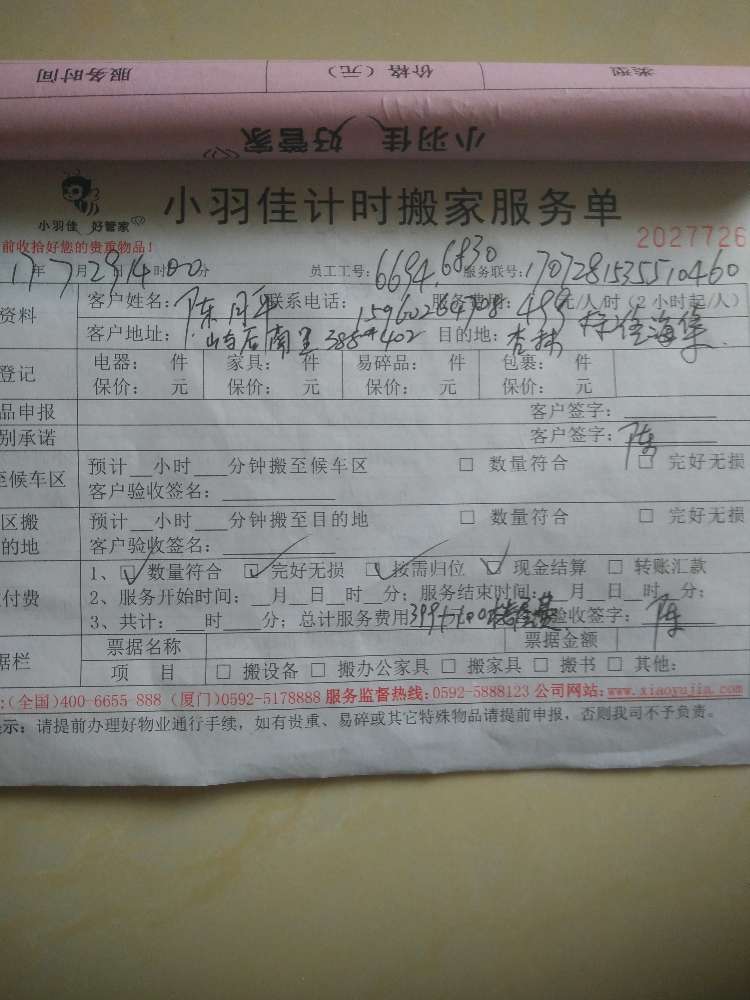 服务时间 价格（元） 类型
小羽佳 好管家
小羽佳 好管家
小羽佳计时搬家服务单
前收拾好您的贵重物品！
2027726
17年7月29日14时00分 员工工号：6694.6830 服务联号：170728153551046​0
资料 客户姓名：陈月平 联系电话：15960264708 服务费用：499元/人/时（2小时起/人）
客户地址：后南里385#402 目的地：杏林
登记 电器： 件 家具： 件 易碎品： 件 包裹： 件
保价： 元 保价： 元 保价： 元 保价： 元
品申报 客户签字：
别承诺 客户签字：陈
至候车区 预计__小时__分钟搬至候车区 □ 数量符合 □ 完好无损
客户验收签名：
区搬 预计__小时__分钟搬至目的地 □ 数量符合 □ 完好无损
的地 客户验收签名：
1、☑ 数量符合 ☑ 完好无损 ☑ 按需归位 ☑ 现金结算 □ 转账汇款
付费 2、服务开始时间：__月__日__时__分；服务结束时间：__月__日__时__分；
3、共计：__时__分；总计服务费用 验收签字：陈
据栏 票据名称 票据金额
项 目 □ 搬设备 □ 搬办公家具 □ 搬家具 □ 搬书 □ 其他：
：(全国)400-6655-888 (厦门)0592-5178888 服务监督热线：0592-5888123 公司网站：www.xiaoyujia.com
示：请提前办理好物业通行手续，如有贵重、易碎或其它特殊物品请提前申报，否则我司不予负责。